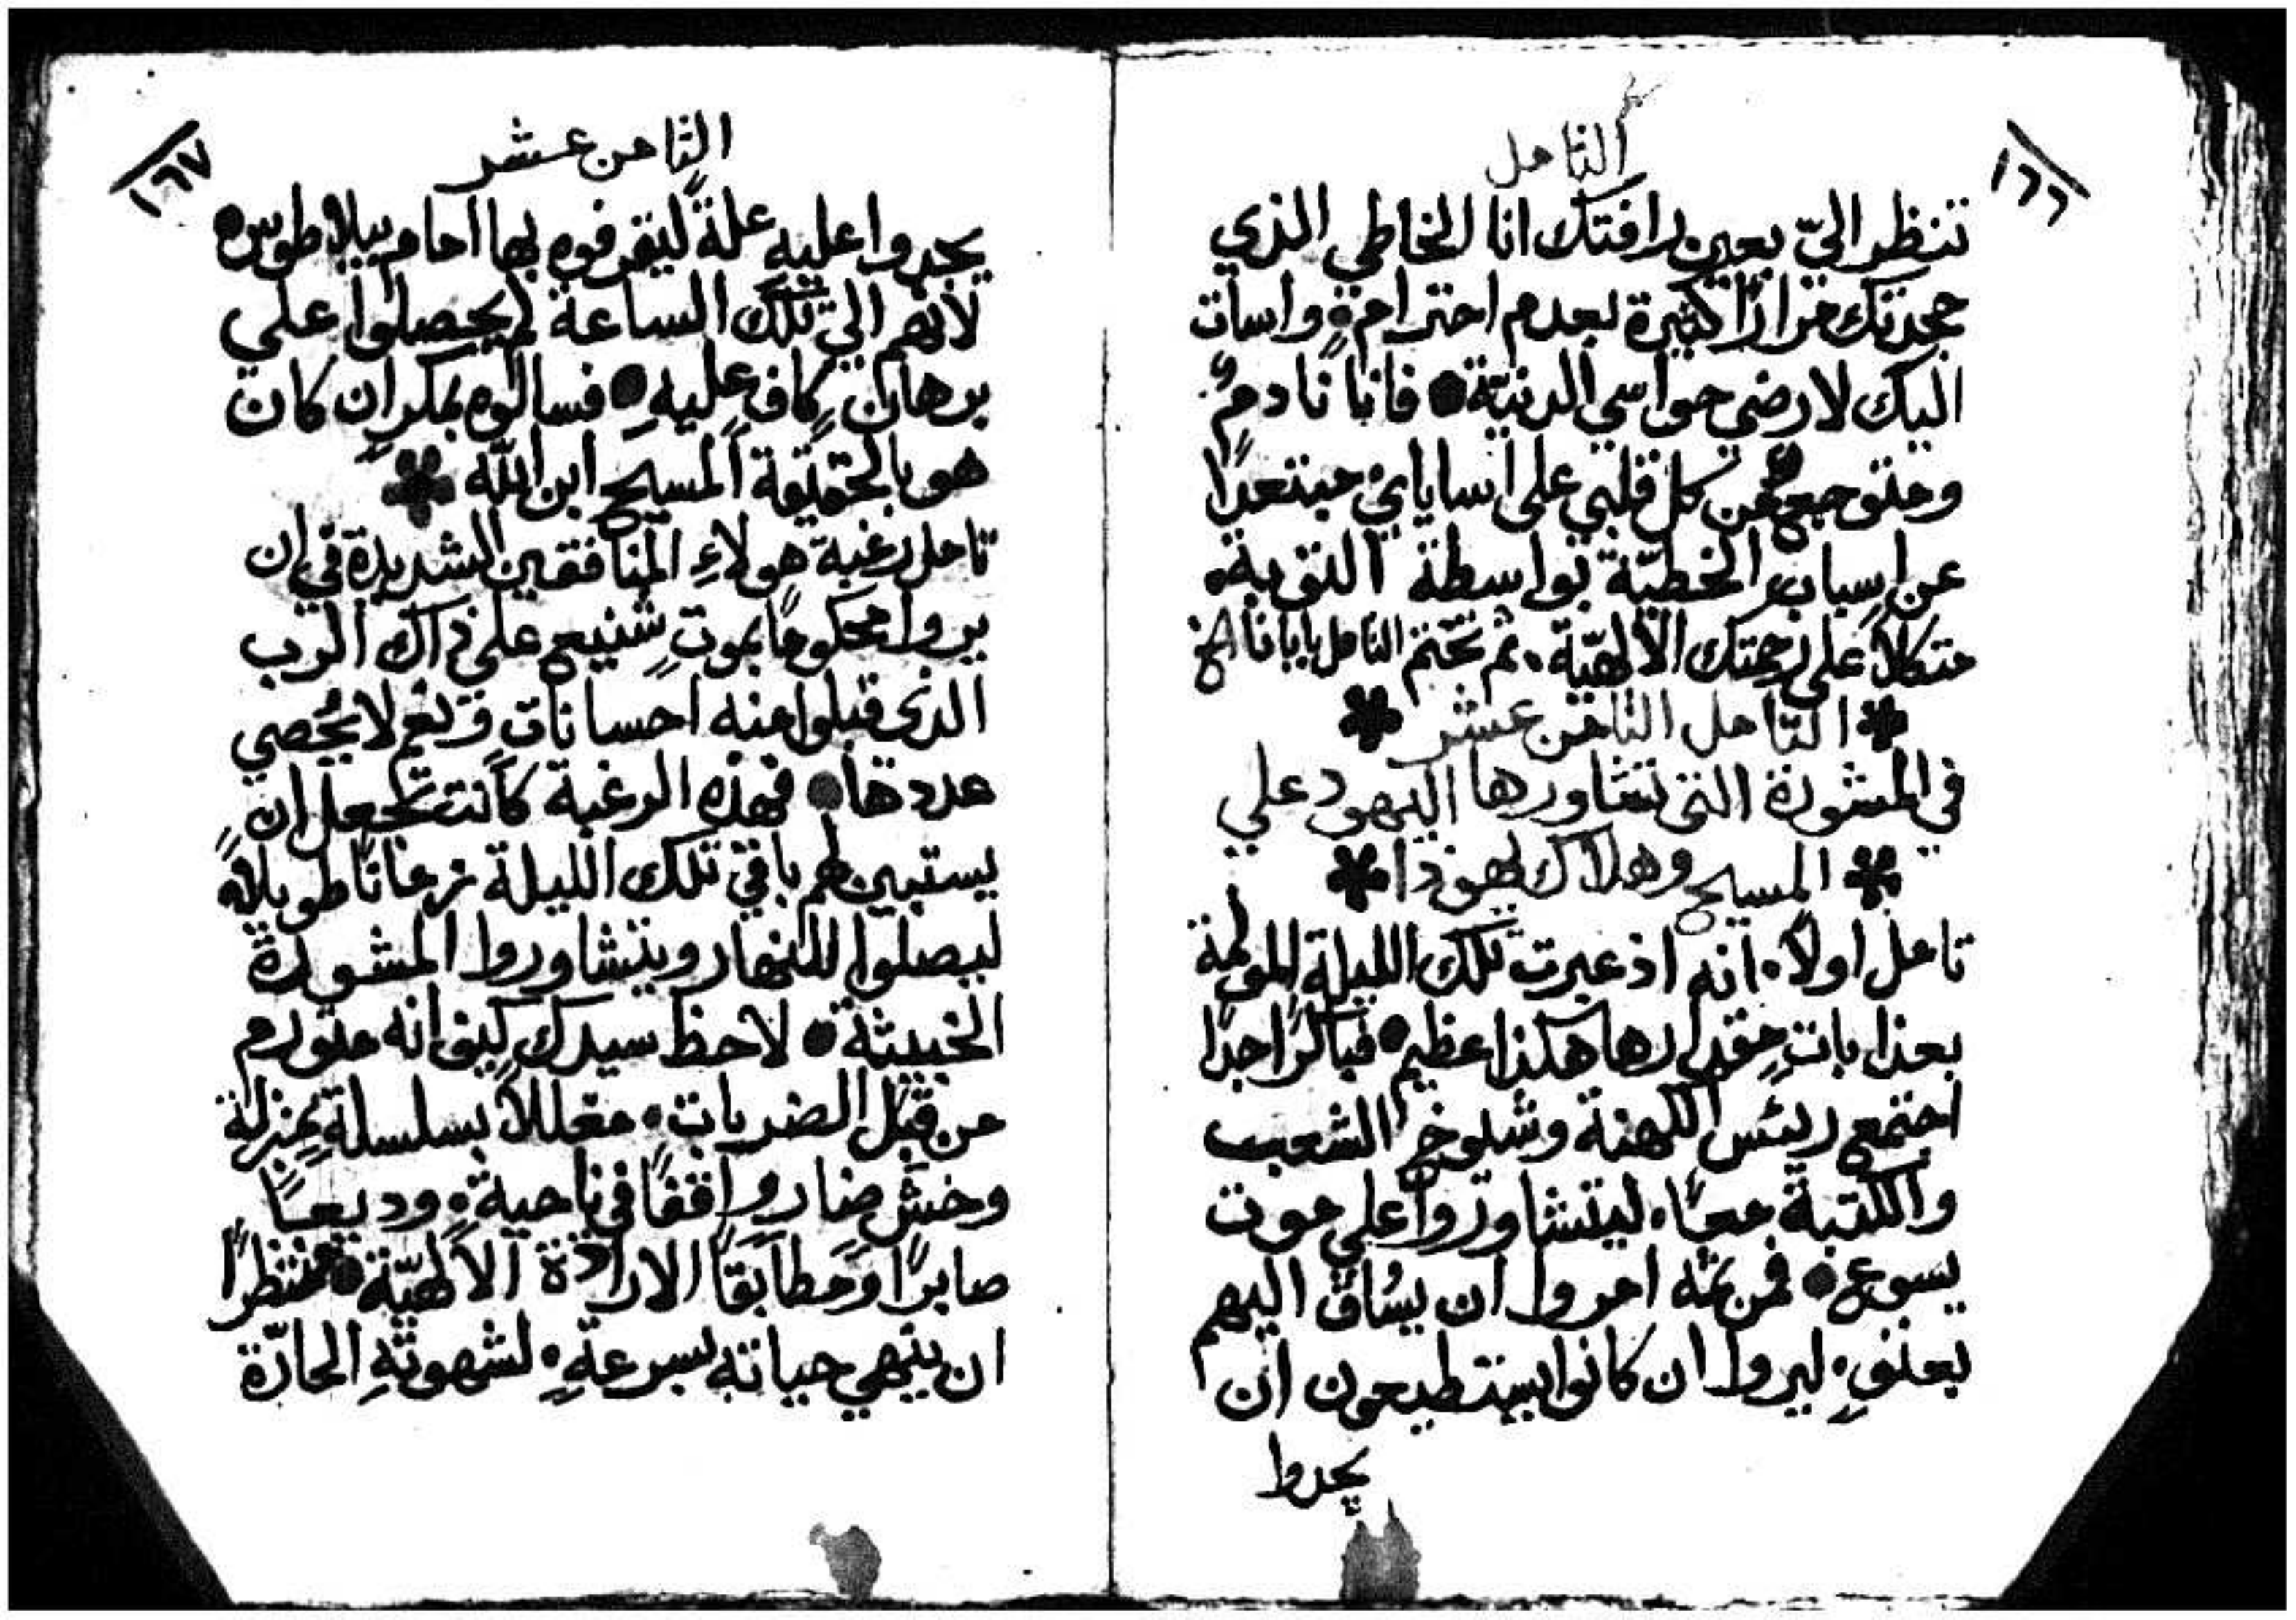 ١٦٦
التامل
تنظر اليّ بعين رافتك انا الخاطي الذي
جحدتك مرارًا كثيرة بعدم احترامةٍ واسات
اليك لارضي حواسي الدنيّة • فانا نادمٌ
ومتوجعٌ من كل قلبي على اساياي مبتعدًا
عن اسباب الخطيّة بواسطة التوبة •
متكلاً على رحمتك الالهيّة • ثم تختم التامل بابانا الخ
* التامل الثامن عشر *
في المشورة التي تشاورها اليهود علي
* المسيح وهلاك يهوذا *
تامل اولاً • انه اذ عبرت تلك الليلة المولمة
بعذابات مقدارها هكذا عظيم • فباكرًا جدًا
اجتمع ريئس الكهنة وشيوخ الشعب
والكتبة معًا • ليتشاوروا علي موت
يسوع • فمن ثمه امروا ان يُساق اليهم
بعنفٍ • ليروا ان كانوا يستطيعون ان
يجدوا
١٦٧
الثامن عشر
يجدوا عليه علةً ليقرفوه بها امام بيلاطوس •
لانهم الي تلك الساعة لم يحصلوا علي
برهانٍ كافٍ عليه • فسالوه بمكرٍ ان كان
هو بالحقيقة المسيح ابن الله *
تامل رغبة هولاءِ المنافقين الشديدة في ان
يروا محكومًا بموتٍ شنيع على ذاك الرب
الذي قبلوا منه احسانات ونعم لا يُحصي
عددها • فهذه الرغبة كانت تجعل ان
يستبين لهم باقي تلك الليلة زمانًا طويلاً •
ليصلوا للنهار ويتشاوروا المشورة
الخبيثة • لاحظ سيدك كيف انه متورم
من قبَل الضربات • مغللاً بسلسلةٍ بمنزلة
وحشٍ ضارٍ واقفًا في ناحيةٍ • وديعًا
صابرًا ومطابقًا الارادة الالهيّة • منتظرًا
ان ينهي حياته بسرعةٍ • لشهوتهِ الحارّة